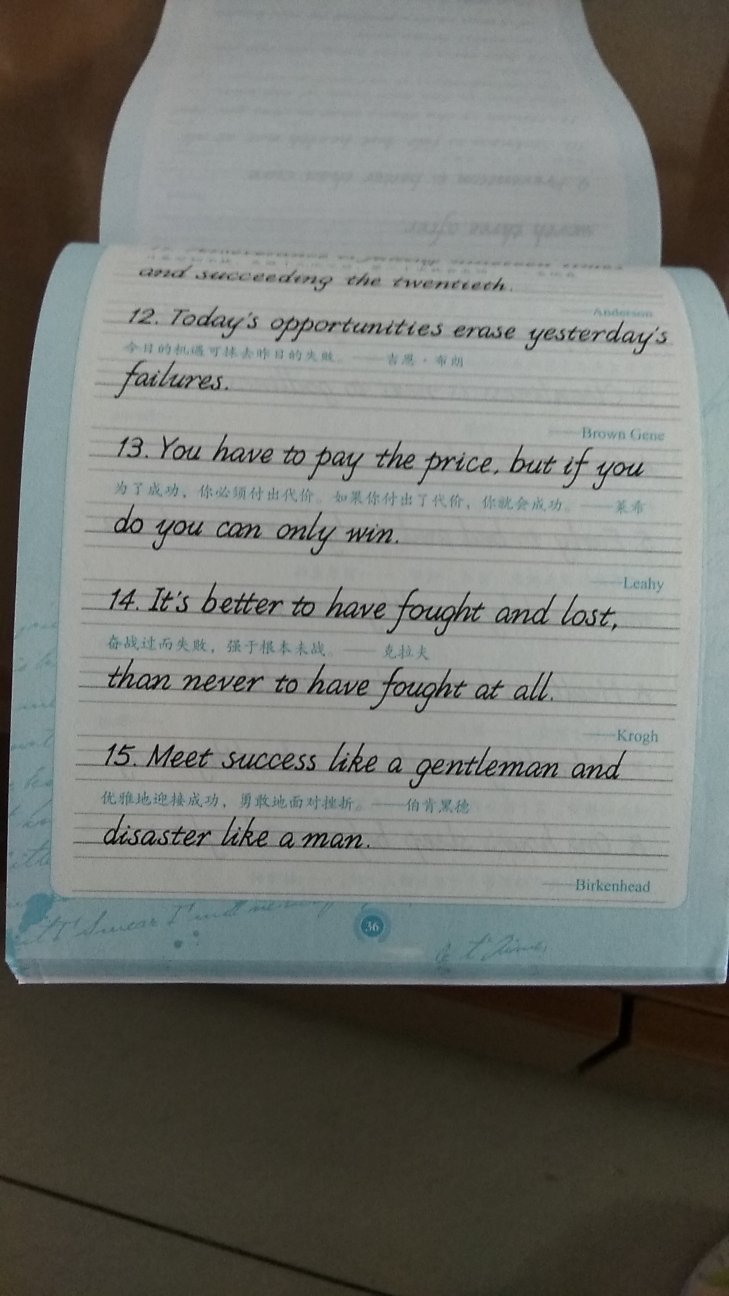 and succeeding the twentieth.
Anderson
12. Today's opportunities erase yesterday's
今日的机遇可抹去昨日的失败。 ——吉恩·布朗
failures.
——Brown Gene
13. You have to pay the price, but if you
为了成功，你必须付出代价。如果你付出了代价，你就会成功。——莱希
do you can only win.
——Leahy
14. It's better to have fought and lost,
奋战过而失败，强于根本未战。——克拉夫
than never to have fought at all.
——Krogh
15. Meet success like a gentleman and
优雅地迎接成功，勇敢地面对挫折。——伯肯黑德
disaster like a man.
——Birkenhead
36